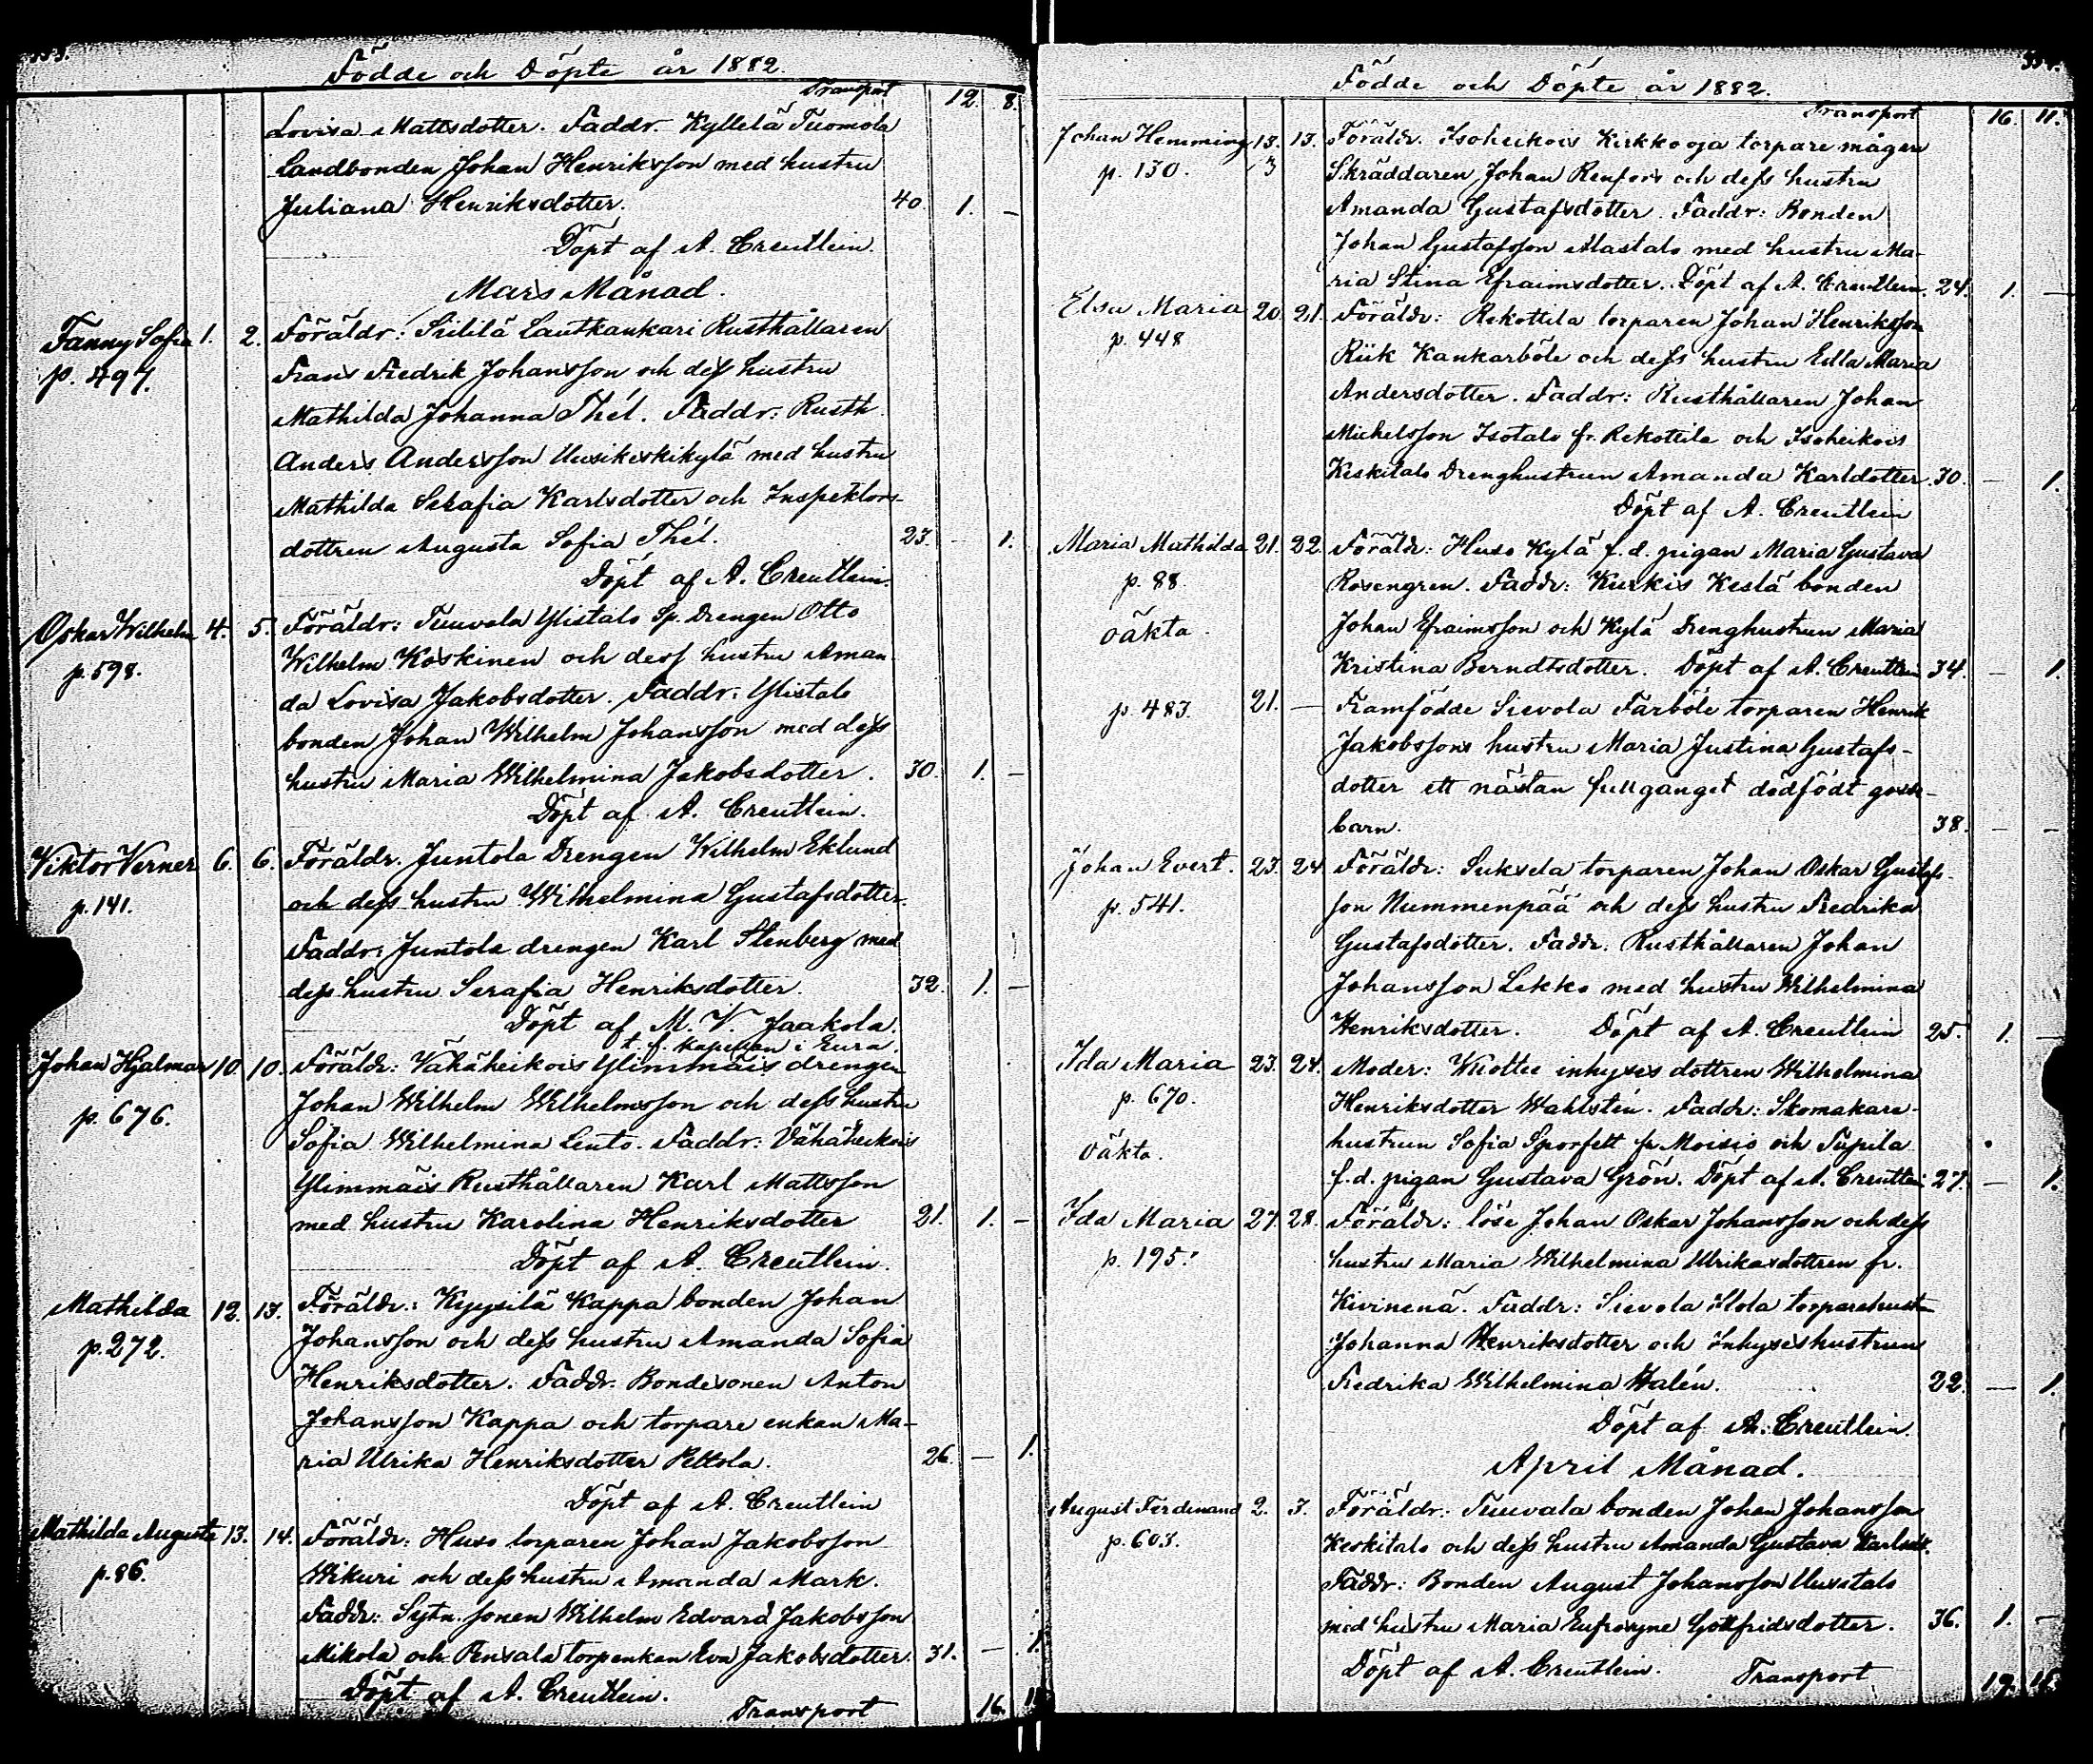 333.
Födde och Döpte år 1882.
Transport 12. 8.
Lovisa Mattsdotter. Faddr. Kylletä Tuomola
Landbonden Johan Henriksson med hustru
Juliana Henriksdotter. 40. 1. —
Döpt af A. Creutlein.
Mars Månad.
Fanny Sofia 1. 2. Föräldr: Siililä Lautkankari Rusthållaren
p. 497. Frans Fredrik Johansson och dess hustru
Mathilda Johanna Thél. Faddr: Rusth.
Anders Andersson Uusikiskikylä med hustru
Mathilda Serafia Karlsdotter och Inspektors-
dottren Augusta Sofia Thél. 23. — 1.
Döpt af A. Creutlein.
Oskar Wilhelm 4. 5. Föräldr: Tuuvala Ylistalo Sp. Drengen Otto
p. 598. Wilhelm Koskinen och dess hustru Aman
da Lovisa Jakobsdotter. Faddr: Ylistalo
bonden Johan Wilhelm Johansson med dess
hustru Maria Wilhelmina Jakobsdotter. 30. 1. —
Döpt af A. Creutlein.
Viktor Verner 6. 6. Föräldr. Juntola Drengen Wilhelm Eklund
p. 141. och dess hustru Wilhelmina Gustafsdotter.
Faddr: Juntola drengen Karl Stenberg med
dess hustru Serafia Henriksdotter. 32. 1. —
Döpt af M. V. Jaakola.
t. f. kapellan i Eura.
Johan Hjalmar 10. 10. Föräldr: Vähäheikois Ylimmäis drengen
p. 676. Johan Wilhelm Wilhelmsson och dess hustru
Sofia Wilhelmina Lento. Faddr: Vähäheikois
Ylimmäis Rusthållaren Karl Mattsson
med hustru Karolina Henriksdotter 21. 1. —
Döpt af A. Creutlein.
Mathilda 12. 13. Föräldr: Kyysilä Kappa bonden Johan
p. 272. Johansson och dess hustru Amanda Sofia
Henriksdotter. Faddr. Bondesonen Anton
Johansson Kappa och torpare enkan Ma-
ria Ulrika Henriksdotter Peltola. 26. — 1.
Döpt af A. Creutlein
Mathilda Augusta 13. 14. Föräldr: Huso torparen Johan Jakobsson
p. 86. Wikuri och dess hustru Amanda Mark.
Faddr: Sytn. sonen Wilhelm Edvard Jakobsson
Mikola och Pensala torpenkan Eva Jakobsdotter. 31. — 1.
Döpt af A. Creutlein.
Transport 16. 11.
334.
Födde och Döpte år 1882.
Transport 16. 11.
Johan Hemming 13. 13. Föräldr. Isoheikois Kirkkooja torpare mågen
p. 130. 3 Skräddaren Johan Renfors och dess hustru
Amanda Gustafsdotter. Faddr: Bonden
Johan Gustafsson Alastalo med hustru Ma-
ria Stina Efraimsdotter. Döpt af A. Creutlein. 24. 1. —
Elsa Maria 20. 21. Föräldr: Rekottila torparen Johan Henriksson
p. 448 Riik Kankarböle och dess hustru Edla Maria
Andersdotter. Faddr: Rusthållaren Johan
Michelsson Isotalo fr. Rekottila och Isoheikois
Keskitalo Drenghustrun Amanda Karldotter. 30. — 1.
Döpt af A. Creutlein
Maria Mathilda 21. 22. Föräldr: Huso Kylä f. d. pigan Maria Gustava
p. 88. Rosengren. Faddr: Kurkis Keslä bonden
oäkta. Johan Efraimsson och Kylä Drenghustrun Maria
Kristina Berndtsdotter. Döpt af A. Creutlein 34. — 1.
p. 483. 21. — Framfödde Sievola Färböle torparen Henrik
Jakobssons hustru Maria Justina Gustafs-
dotter ett nästan fullgånget dödfödt gosse-
barn. 38. — —
Johan Evert. 23. 24 Föräldr: Suksela torparen Johan Oskar Gustafs-
p. 541. son Nummenpää och dess hustru Fredrika
Gustafsdotter. Faddr. Rusthållaren Johan
Johansson Lekko med hustru Wilhelmina
Henriksdotter. Döpt af A. Creutlein 25. 1. —
Ida Maria 23. 24. Moder: Wuolte inhyses dottren Wilhelmina
p. 670. Henriksdotter Wahlstén. Faddr: Skomakare-
oäkta. hustrun Sofia Sporfelt fr Moisio och Tupila
f. d. pigan Gustava Grön. Döpt af A. Creutlein 27. — 1.
Ida Maria 27. 28. Föräldr: löse Johan Oskar Johansson och dess
p. 195. hustru Maria Wilhelmina Ulrikasdottren fr.
Kivinenä. Faddr: Sievola torparehustru
Johanna Henriksdotter och Inhyseshustrun
Fredrika Wilhelmina Halén. 22. — 1.
Döpt af A. Creutlein.
April Månad.
August Ferdinand 2. 3. Föräldr: Tuuvala bonden Johan Johansson
p. 603. Keskitalo och dess hustru Amanda Gustava Karlsdt.
Faddr: Bonden August Johansson Uusitalo
med hustru Maria Eufrosyne Gottfridsdotter. 36. 1. —
Döpt af A. Creutlein. Transport 19. 15.